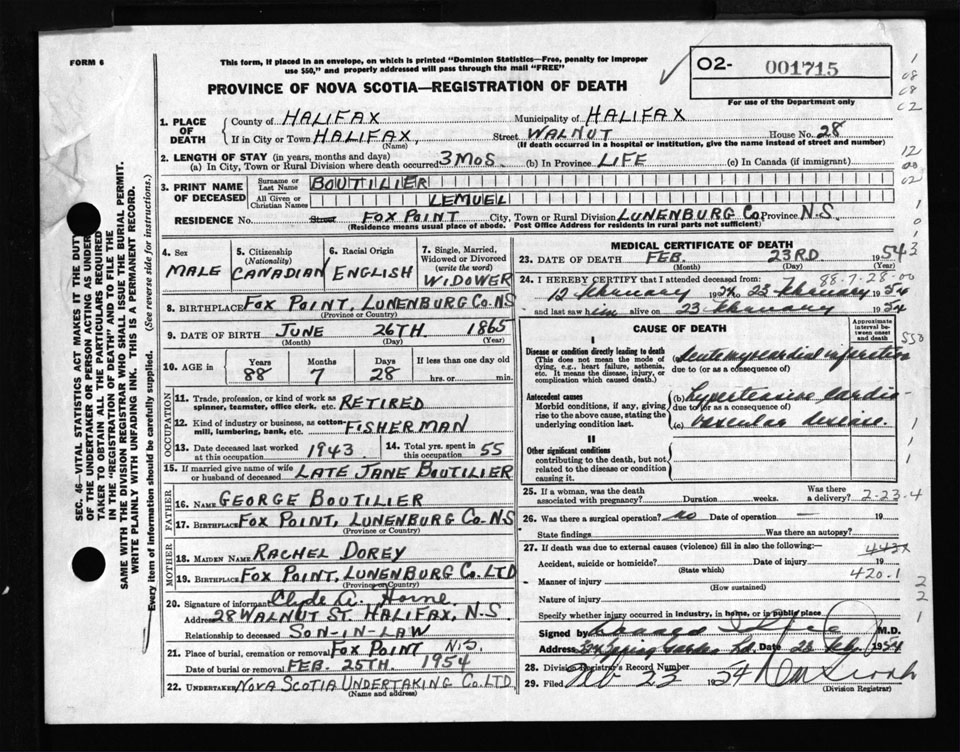 FORM 6
This form, if placed in an envelope, on which is printed "Dominion Statistics—Free, penalty for improper
use $50," and properly addressed will pass through the mail "FREE"
O2- 001715
For use of the Department only
PROVINCE OF NOVA SCOTIA—REGISTRATION OF DEATH
1. PLACE OF DEATH
County of HALIFAX Municipality of HALIFAX
If in City or Town HALIFAX, (Name) Street WALNUT House No. 28
(If death occurred in a hospital or institution, give the name instead of street and number)
2. LENGTH OF STAY (in years, months and days)
(a) In City, Town or Rural Division where death occurred 3 MOS. (b) In Province LIFE (c) In Canada (if immigrant)
3. PRINT NAME OF DECEASED
Surname or Last Name BOUTILIER
All Given or Christian Names LEMUEL
RESIDENCE No. Street FOX POINT City, Town or Rural Division LUNENBURG Co. Province N.S.
(Residence means usual place of abode. Post Office Address for residents in rural parts not sufficient)
4. Sex MALE
5. Citizenship (Nationality) CANADIAN
6. Racial Origin ENGLISH
7. Single, Married, Widowed or Divorced (write the word) WIDOWER
8. BIRTHPLACE FOX POINT, LUNENBURG CO. NS
(Province or Country)
9. DATE OF BIRTH JUNE 26TH 1865
(Month) (Day) (Year)
10. AGE in Years 88 Months 7 Days 28 If less than one day old hrs. or min.
OCCUPATION
11. Trade, profession, or kind of work as spinner, teamster, office clerk, etc. RETIRED
12. Kind of industry or business, as cotton mill, lumbering, bank, etc. FISHERMAN
13. Date deceased last worked at this occupation 1943
14. Total yrs. spent in this occupation 55
15. If married give name of wife or husband of deceased LATE JANE BOUTILIER
FATHER
16. Name GEORGE BOUTILIER
17. Birthplace FOX POINT, LUNENBURG CO. N.S
(Province or Country)
MOTHER
18. MAIDEN NAME RACHEL DOREY
19. BIRTHPLACE FOX POINT, LUNENBURG CO. LTD
(Province or Country)
20. Signature of informant Clyde A. Horne
Address 28 WALNUT ST. HALIFAX, N.S
Relationship to deceased SON-IN-LAW
21. Place of burial, cremation or removal FOX POINT N.S.
Date of burial or removal FEB. 25TH. 1954
22. UNDERTAKER NOVA SCOTIA UNDERTAKING CO. LTD
(Name and address)
MEDICAL CERTIFICATE OF DEATH
23. DATE OF DEATH FEB. 23RD 1954
(Month) (Day) (Year)
88-7-28-00
24. I HEREBY CERTIFY that I attended deceased from:
12 February 1954 to 23 February 1954
and last saw him alive on 23 February 1954
CAUSE OF DEATH
Approximate interval between onset and death
I
Disease or condition directly leading to death
(This does not mean the mode of dying, e.g., heart failure, asthenia, etc. It means the disease, injury, or complication which caused death.)
Acute myocardial infarction
due to (or as a consequence of)
Antecedent causes
Morbid conditions, if any, giving rise to the above cause, stating the underlying condition last.
(b) hypertensive cardio-
due to (or as a consequence of)
(c) vascular disease.
II
Other significant conditions
contributing to the death, but not related to the disease or condition causing it.
25. If a woman, was the death associated with pregnancy? Duration weeks. Was there a delivery?
2-23-4
26. Was there a surgical operation? no Date of operation — 19
State findings Was there an autopsy?
27. If death was due to external causes (violence) fill in also the following:—
Accident, suicide or homicide? Date of injury 19
(State which)
420.1
Manner of injury
(How sustained)
Nature of injury
Specify whether injury occurred in industry, in home, or in public place
Signed by M.D.
Address Date 1954
28. Division Registrar's Record Number
29. Filed Feb 23 1954
(Division Registrar)
SEC. 46—VITAL STATISTICS ACT MAKES IT THE DUTY
OF THE UNDERTAKER OR PERSON ACTING AS UNDER-
TAKER TO OBTAIN ALL THE PARTICULARS REQUIRED
IN THE "REGISTRATION OF DEATH" AND TO FILE THE
SAME WITH THE DIVISION REGISTRAR WHO SHALL ISSUE THE BURIAL PERMIT.
WRITE PLAINLY WITH UNFADING INK. THIS IS A PERMANENT RECORD.
Every item of information should be carefully supplied. (See reverse side for instructions.)
1
08
08
02
12
02
550